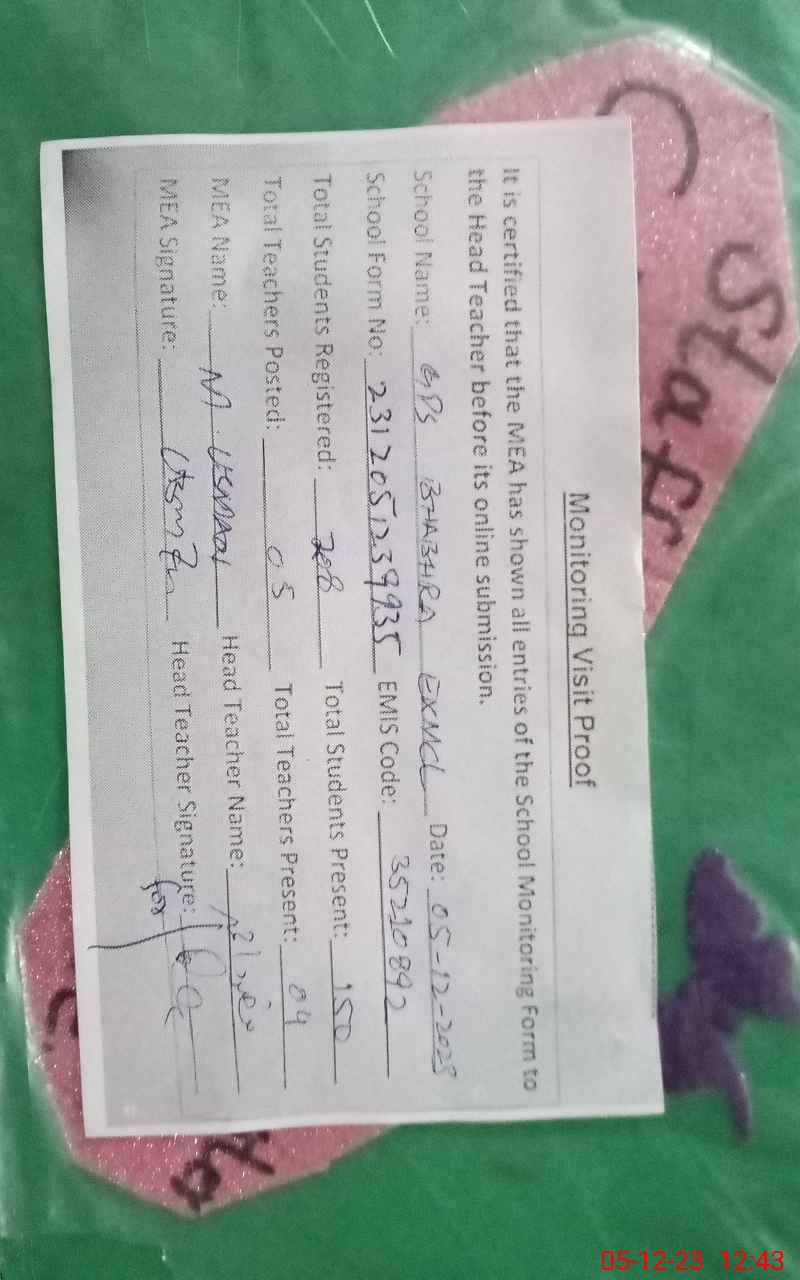 Monitoring Visit Proof
It is certified that the MEA has shown all entries of the School Monitoring Form to
the Head Teacher before its online submission.
School Name: GPS BHABHRA Date: 05-12-2023
School Form No: 2312051239935 EMIS Code: 35210892
Total Students Registered: Total Students Present: 150
Total Teachers Posted: 05 Total Teachers Present: 04
MEA Name: M. USMAN Head Teacher Name:
MEA Signature: Head Teacher Signature:
for
Staff
05-12-23 12:43